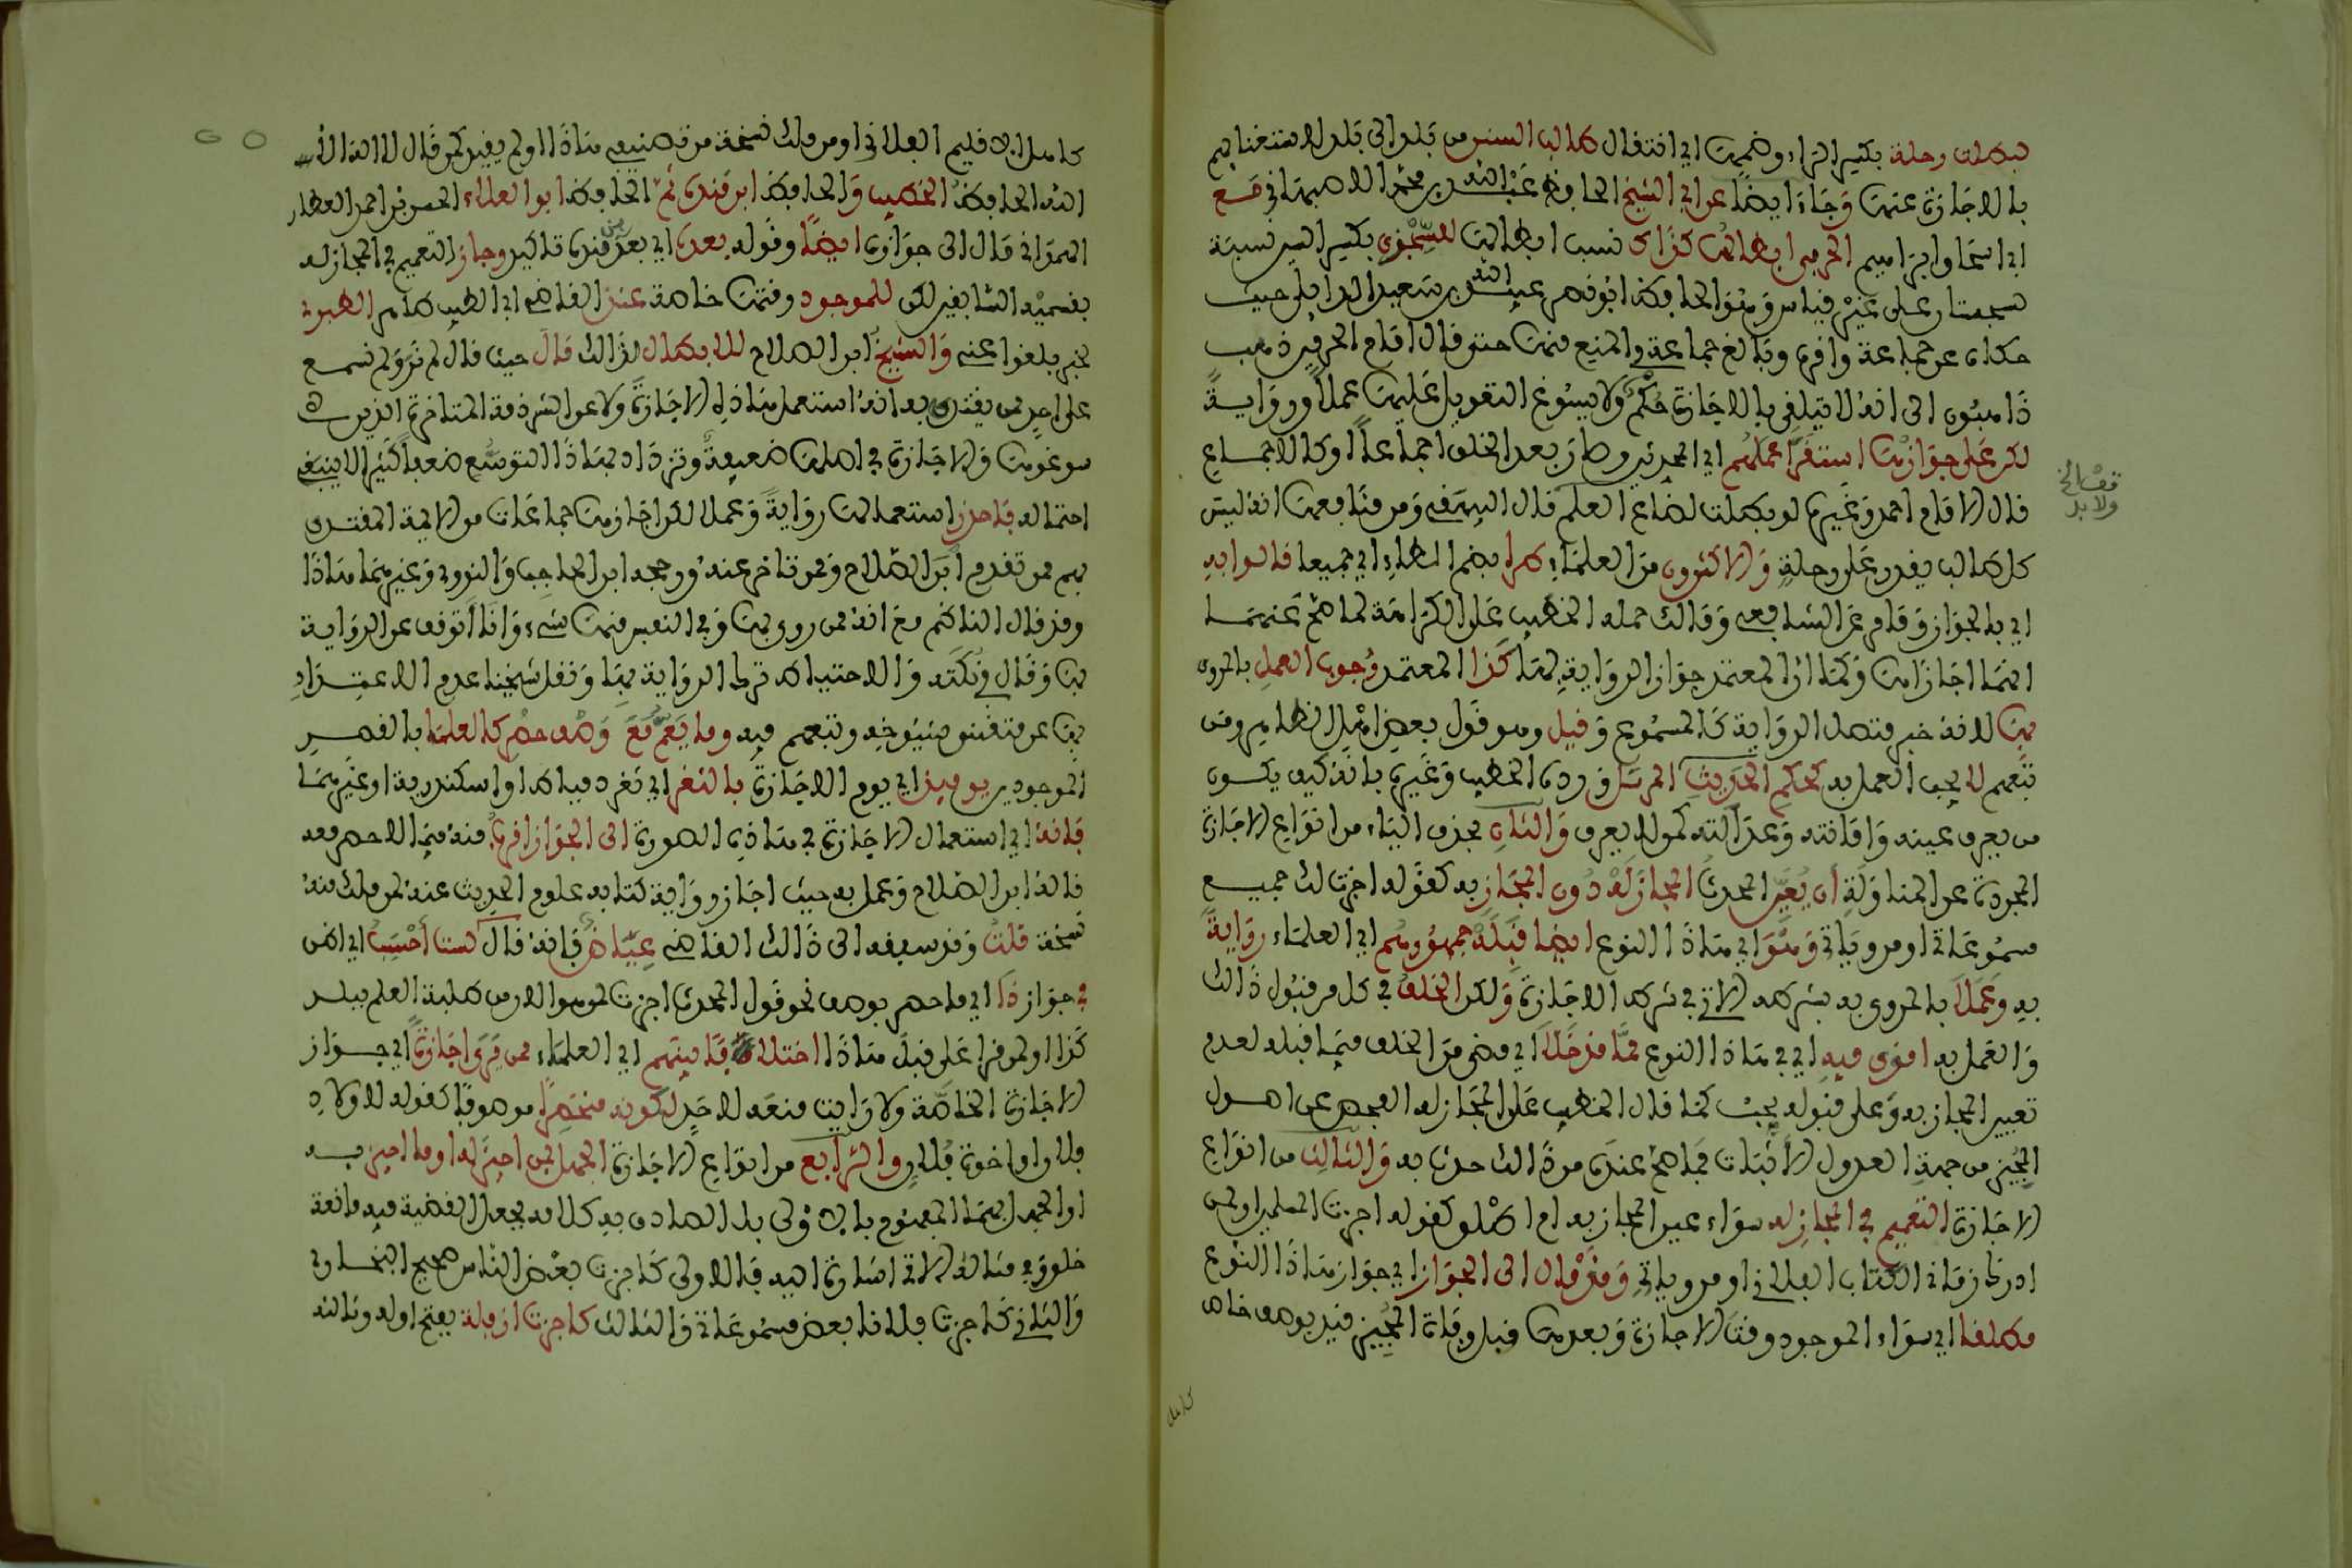 لبطلت رحلة بكسر الراء وضمها اي انتقال طالب السنن من بلد الى بلد للاستغنائهم
بالاجازة عنها وجاء ايضا عن ابي الشيخ الحافظ عبد الله بن محمد الاصبهاني مع
ابي اسحاق ابراهيم الحربي ابطالها كذاك نسب ابطالها للسجزي بكسر السين نسبة
لسجستان على غير قياس وهو الحافظ ابو نصر عبيد الله بن سعيد الوابلي حيث
حكاه عن جماعة وافره وبالغ جماعة والمنع منها حتى قال امام الحرمين
ذاهبون الى انه لا يتلقى بالاجازة حكم ولا يسوغ التعويل عليها عملا ورواية
لكن على جوازها استقر عملهم اي المحدثين وصار بعد الخلف اجماعا او كالاجماع
قال الامام احمد وغيره لو بطلت لضاع العلم قال السلفي ومن منافعها انه ليس
كل طالب يقدر على رحلة والاكثرون من العلماء طرا بضم الطاء اي جميعا قالوا به
اي بالجواز وقام عن الشافعي ومالك حمله الخطيب على الكراهة لما صح عنهما
انهما اجازاها وكما ان المعتمد جواز الرواية بها كذا المعتمد وجوب العمل بالمروي
بها لانه خبر متصل الرواية كالمسموع وقيل وهو قول بعض اهل الظاهر ومن
تبعهم لا يجب العمل به كحكم الحديث المرسل ورده الخطيب وغيره بانه كيف يكون
من يعرف عينه وامانته وعدالته كمن لا يعرف والثان بحذف الياء من انواع الاجازة
المجردة عن المناولة ان يعين المحدث المجاز له دون المجاز به كقوله اجزت لك جميع
مسموعاتي او مروياتي وهو اي هذا النوع ايضا قبله جمهورهم اي العلماء رواية
به وعملا بالمروي به بشرطه الاتي في شرط الاجازة ولكن الخلف في كل من قبول ذالك
والعمل به اقوى فيه اي في هذا النوع مما قد خلا اي مضى من الخلف فيما قبله لعدم
تعيين المجاز به وعلى قبوله يجب كما قال الخطيب على المجاز له الفحص عن اصول
المجيز من جهة العدول الاثبات فما صح عنده من ذالك حدث به والثالث من انواع
الاجازة التعميم في المجاز له سواء عين المجاز به ام اطلق كقوله اجزت المسلمين او لمن
ادرك زماني الكتاب الفلاني او مروياتي وقد مال الى الجواز اي جواز هذا النوع
مطلقا اي سواء الموجود وقت الاجازة وبعدها وقبل وفاة المجيز قيد بوصف خاص
صح
ولا بد
كامل
كاهل الاقليم الفلاني او من ملك نسخة من تصنيفي هذا او لم يقيد كمن قال لا اله الا
الله الحافظ الخطيب والحافظ ابن منده ثم الحافظ ابو العلاء الحسن بن احمد العطار
الهمذاني قال الى جوازه ايضا وقوله بعده اي بعد ابن منده تاكيد وجاز التعميم في المجاز له
بقسميه السابقين لكن للموجود وقتها خاصة عند القاضي ابي الطيب طاهر الطبري
لخبر بلغوا عني والشيخ ابن الصلاح للابطال لذالك قال حيث قال لم نر ولم نسمع
على احد ممن يقتدى به انه استعمل هذه الاجازة ولا عن الشرذمة المتاخرة الذين
سوغوها والاجازة في اصلها ضعيفة وتزداد بهذا التوسع ضعفا كثيرا لا ينبغي
احتماله فاحذر استعمالها رواية وعملا لكن اجازها جماعات من الايمة المقتدى
بهم ممن تقدم ابن الصلاح وممن تاخر عنه ورجحه ابن الحاجب والنووي وغيرهما هذا
وقد قال الناظم مع انه ممن روى بها وفي النفس منها شيء وانا اتوقف عن الرواية
بها وقال في نكته والاحتياط ترك الرواية بها ونقل شيخنا عدم الاعتداد
بها عن متقني شيوخه وتبعهم فيه وما يعم مع وصف حصر كالعلما بالقصر
الموجودين يوميذ اي يوم الاجازة بالثغر اي ثغر دمياط او اسكندرية او غيرهما
فانه اي استعمال الاجازة في هذه الصورة الى الجواز اقرب منه فيما لا حصر معه
قاله ابن الصلاح وعمل به حيث اجاز رواية كتابه علوم الحديث عنه لمن ملك منه
نسخة قلت وقد سبقه الى ذالك القاضي عياض فانه قال لست احسب اي اظن
في جواز ذا اي ما حصر بوصف نحو قول المحدث اجزت لمن هو الان من طلبة العلم ببلد
كذا او لمن قرا علي قبل هذا اختلافا بينهم اي العلماء ممن يرى اجازة اي جواز
الاجازة الخاصة ولا رايت منعه لاحد لكونه منحصرا موصوفا كقوله لاولاد
فلان او اخوة فلان والرابع من انواع الاجازة الجهل بمن اجيز له او ما اجيز به
او الجهل بهما المفهوم بالاولى بل الصادق به كلامه بجعل القضية فيه مانعة
خلو وفي مثاله الاتي اشارة اليه فالاولى كاجزت بعض الناس صحيح البخاري
والثاني كاجزت فلانا بعض مسموعاتي والثالث كاجزت ازفلة بفتح اوله وثالثه